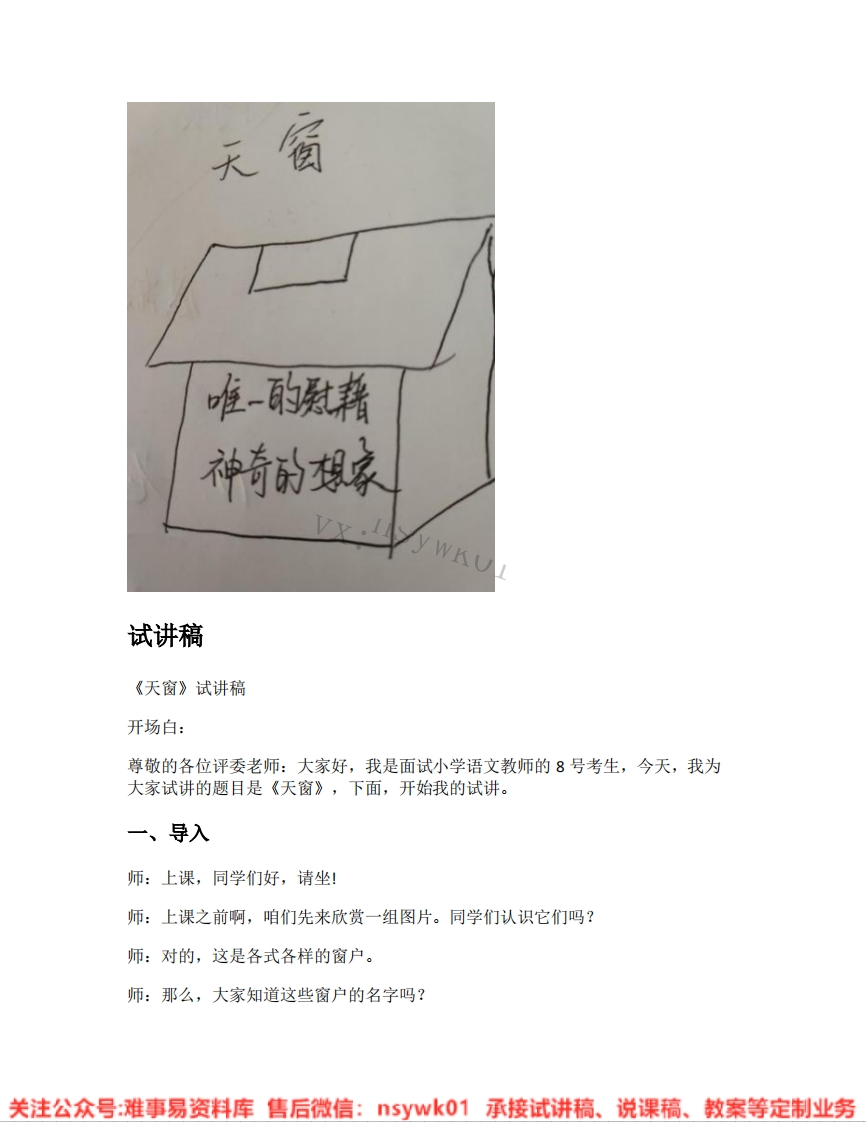 天窗
唯一的慰藉
神奇的想象
vx:nsywk01
试讲稿
《天窗》试讲稿
开场白：
尊敬的各位评委老师：大家好，我是面试小学语文教师的 8 号考生，今天，我为
大家试讲的题目是《天窗》，下面，开始我的试讲。
一、导入
师：上课，同学们好，请坐!
师：上课之前啊，咱们先来欣赏一组图片。同学们认识它们吗？
师：对的，这是各式各样的窗户。
师：那么，大家知道这些窗户的名字吗？
关注公众号:难事易资料库 售后微信：nsywk01 承接试讲稿、说课稿、教案等定制业务